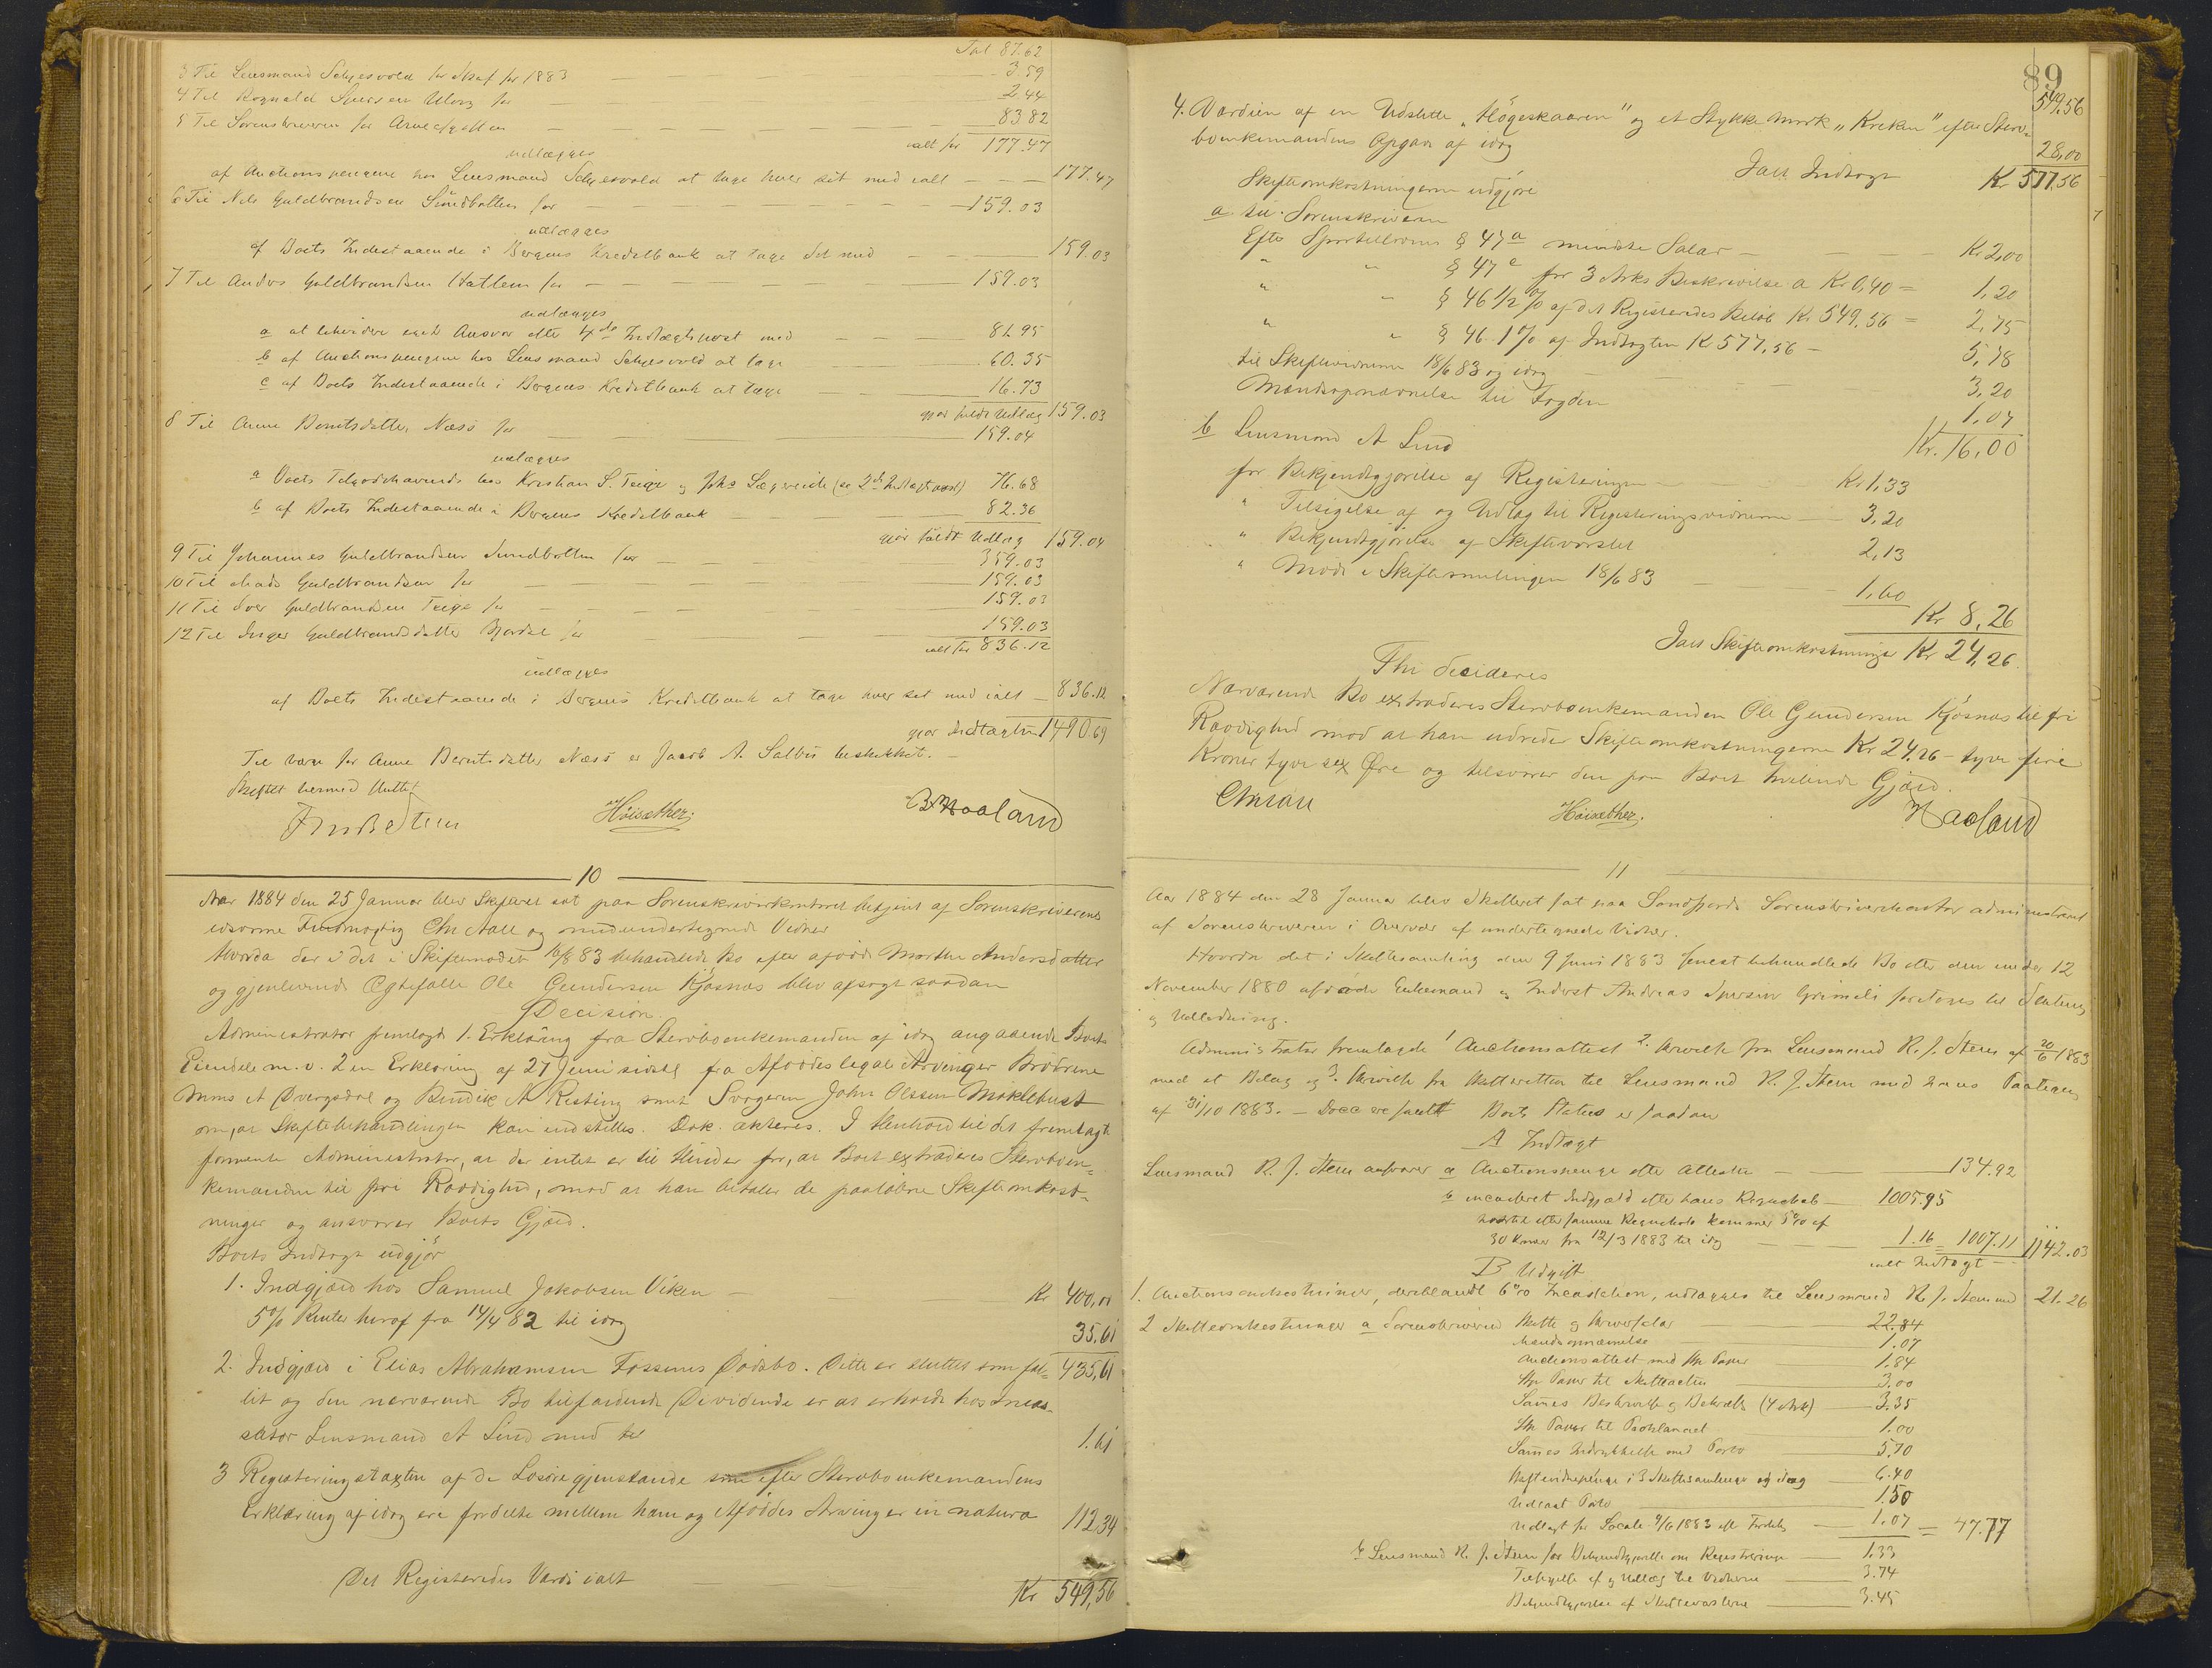 Tal 87.62
3 Til Lensmand Schjesvold for Skat for 1883 — 3.59
4 Til Rognald Iversen for — 2.44
5 Til Sorenskriveren for Arveafgiften — 83 82
ialt for 177.47
udlægges
af Auctionspengene hos Lensmand Schjesvold at tage hver sit med ialt — 177.47
6 Til Nils Guldbrandsen Sundbotten for — 159.03
udlægges
af Boets Indestaaende i Bergens Kreditbank at tage det med — 159.03
7 Til Anders Guldbrandsen Hatlem for — 159.03
udlægges
a at likvidere eget Ansvar efter Indtægtspost med — 81.95
b af Auctionspengene hos Lensmand Schjesvold at tage — 60.35
c af Boets Indestaaende i Bergens Kreditbank at tage — 16.73
gjør fuldt Udlæg 159.03
8 Til Anne Berntsdatter Næss for — 159.04
udlægges
a Boets Tilgodehavende hos Kristian S. Teige og Joh.s Lægreide (se 2den Indtægtspost) 76.68
b af Boets Indestaaende i Bergens Kreditbank — 82.36
gjør fuldt Udlæg 159.04
9 Til Johannes Guldbrandsen Sundbotten for — 359.03
10 Til Mads Guldbrandsen for — 159.03
11 Til Iver Guldbrandsen Teige for — 159.03
12 Til Inger Guldbrandsdatter for — 159.03
ialt for 836.12
udlægges
af Boets Indestaaende i Bergens Kreditbank at tage hver sit med ialt — 836.12
gjør Indtægten 1490.69
Til Værge for Anne Berntsdatter Næss er Jacob A. Salbu beskikket. —
Skiftet hermed sluttet
Høisæther. Haaland
10
Aar 1884 den 25 Januar blev Skifteret sat paa Sorenskriverkontoret betjent af Sorenskriverens
edsvorne Fuldmægtig Chr Aall og medundertegnede Vidner
Hvorda der i det i Skiftemødet 18/6 83 behandlede Bo efter afdøde Marthe Andersdatter
og gjenlevende Egtefælle Ole Gundersen Kjøsnæs blev afsagt saadan
Decision.
Administrator fremlagde 1. Erklæring fra Stervboenkemanden af idag angaaende Boets
Eiendele m. v. 2 en Erklæring af 27 Juni sidstl fra Afdødes legale Arvinger Brødrene
Mons A Øvergsdal og Bendik A Resting samt Svogeren John Olssen Møklebust
om, at Skiftebehandlingen kan indstilles. Dok. akteres. I Henhold til det fremlagte
formente Administrator, at der intet er til Hinder for, at Boet extraderes Stervboen-
kemanden til fri Raadighed, mod at han betaler de paaløbne Skifteomkost-
ninger og ansvarer Boets Gjæld.
Boets Indtægt udgjør
1. Indgjæld hos Samuel Jakobsen Viken — Kr 400,00
5% Renter heraf fra 14/4 82 til idag 35,61
2. Indgjæld i Elias Abrahamsen Fossens Dødsbo. Dette er sluttet som fal- 435,61
lit og den nærværende Bo tilfaldende Dividende er at erholde hos Incas-
sator Lensmand A Lind med 1.61
3 Registeringstaxten af de Løsøregjenstande som efter Stervboenkemandens
Erklæring af idag ere fordelte mellem ham og Afdødes Arvinger in natura 112.34
Det Registeredes Værdi ialt — Kr 549,56
89
549,56
4. Værdien af en Udslette "Høgeskaaren" og et Stykke Mark "Kreken" efter Sterv-
boenkemandens Opgave af idag 28,00
Ialt Indtægt Kr 577,56
Skifteomkostningerne udgjøre
a til Sorenskriveren
Efter Sportellovens § 47 a mindste Salær — Kr 2,00
" " § 47 c for 3 Arks Beskrivelse a Kr 0,40 = 1,20
" " § 46 1/2 % af det Registeredes Beløb Kr 549,56 = 2,75
" " § 46 1 % af Indtægten K 577,56 — 5,78
til Skiftevidnerne 18/6 83 og idag 3,20
Mændsopnævnelse til Fogden 1,07
Kr. 16,00
b Lensmand A Lind
for Bekjendtgjørelse af Registeringen — Kr 1,33
" Tilsigelse af og Udlæg til Registeringsvidnerne — 3,20
" Bekjendtgjørelse af Skiftevarslet 2,13
" Møde i Skiftesamlingen 18/6 83 1,60
Kr 8,26
Ialt Skifteomkostninger Kr 24,26.
Thi decideres
Nærværende Bo extraderes Stervboenkemanden Ole Gundersen Kjøsnæs til fri
Raadighed mod at han udreder Skifteomkostningerne Kr 24,26 – tyve fire
Kroner tyve sex Øre og tilsvarer den paa Boet hvilende Gjæld.
Chr Aall Høisæther. Haaland
11
Aar 1884 den 28 Januar blev Skifteret sat paa Søndfjords Sorenskriverkontor administreret
af Sorenskriveren i Overvær af undertegnede Vidner.
Hvorda det i Skiftesamling den 9 Juni 1883 senest behandlede Bo efter den under 12
November 1880 afdøde Enkemand og Inderst Andreas Iversen Grimeli foretages til Slutning
og Udlodning.
Administrator fremlagde 1 Auctionsattest 2. Skrivelse fra Lensmand R. J. Steen af 20/6 1883
med et Bilag og 3. Skrivelse fra Skifteretten til Lensmand R. J. Steen med hans Paategn
af 31/10 1883. — Boets Status er saadan
A Indtægt
Lensmand R. J. Steen ansvarer a Auctionspenge efter Attesten — 134.92
b incasseret Indgjæld efter hans Regnskab — 1005.95
hvortil efter samme Regnskab kommer 5% af
30 Kroner fra 12/3 1883 til idag — 1.16 = 1007.11 1142.03
ialt Indtægt —
B Udgift
1. Auctionsomkostninger, deriblandt 6% Incassation, udlægges til Lensmand R. J. Steen med 21.26
2 Skifteomkostninger a Sorenskriveren Skifte og Skriversalær — 22.84
Mændsopnævnelse — 1.07
Auctionsattest med St Papir 1.84
St Papir til Skifteacten — 3.00
Sammes Beskrivelse og Bekræft (4 Ark) — 3.35
St Papir til Proklamaet 1.00
Sammes Indrykkelse med Porto 5.70
Skiftevidnepenge i 3 Skiftesamlinger og idag — 6.40
Udlagt Porto — 1.50
Udlagt for Locale 9/6 1883 efter Fordeling — 1.07 = 47.77
b Lensmand R. J. Steen for Bekjendtgjørelse om Registrering — 1.33
Tilsigelse af og Udlæg til Vidnerne — 3.74
Bekjendtgjørelse af Skiftevarslerne — 3.45